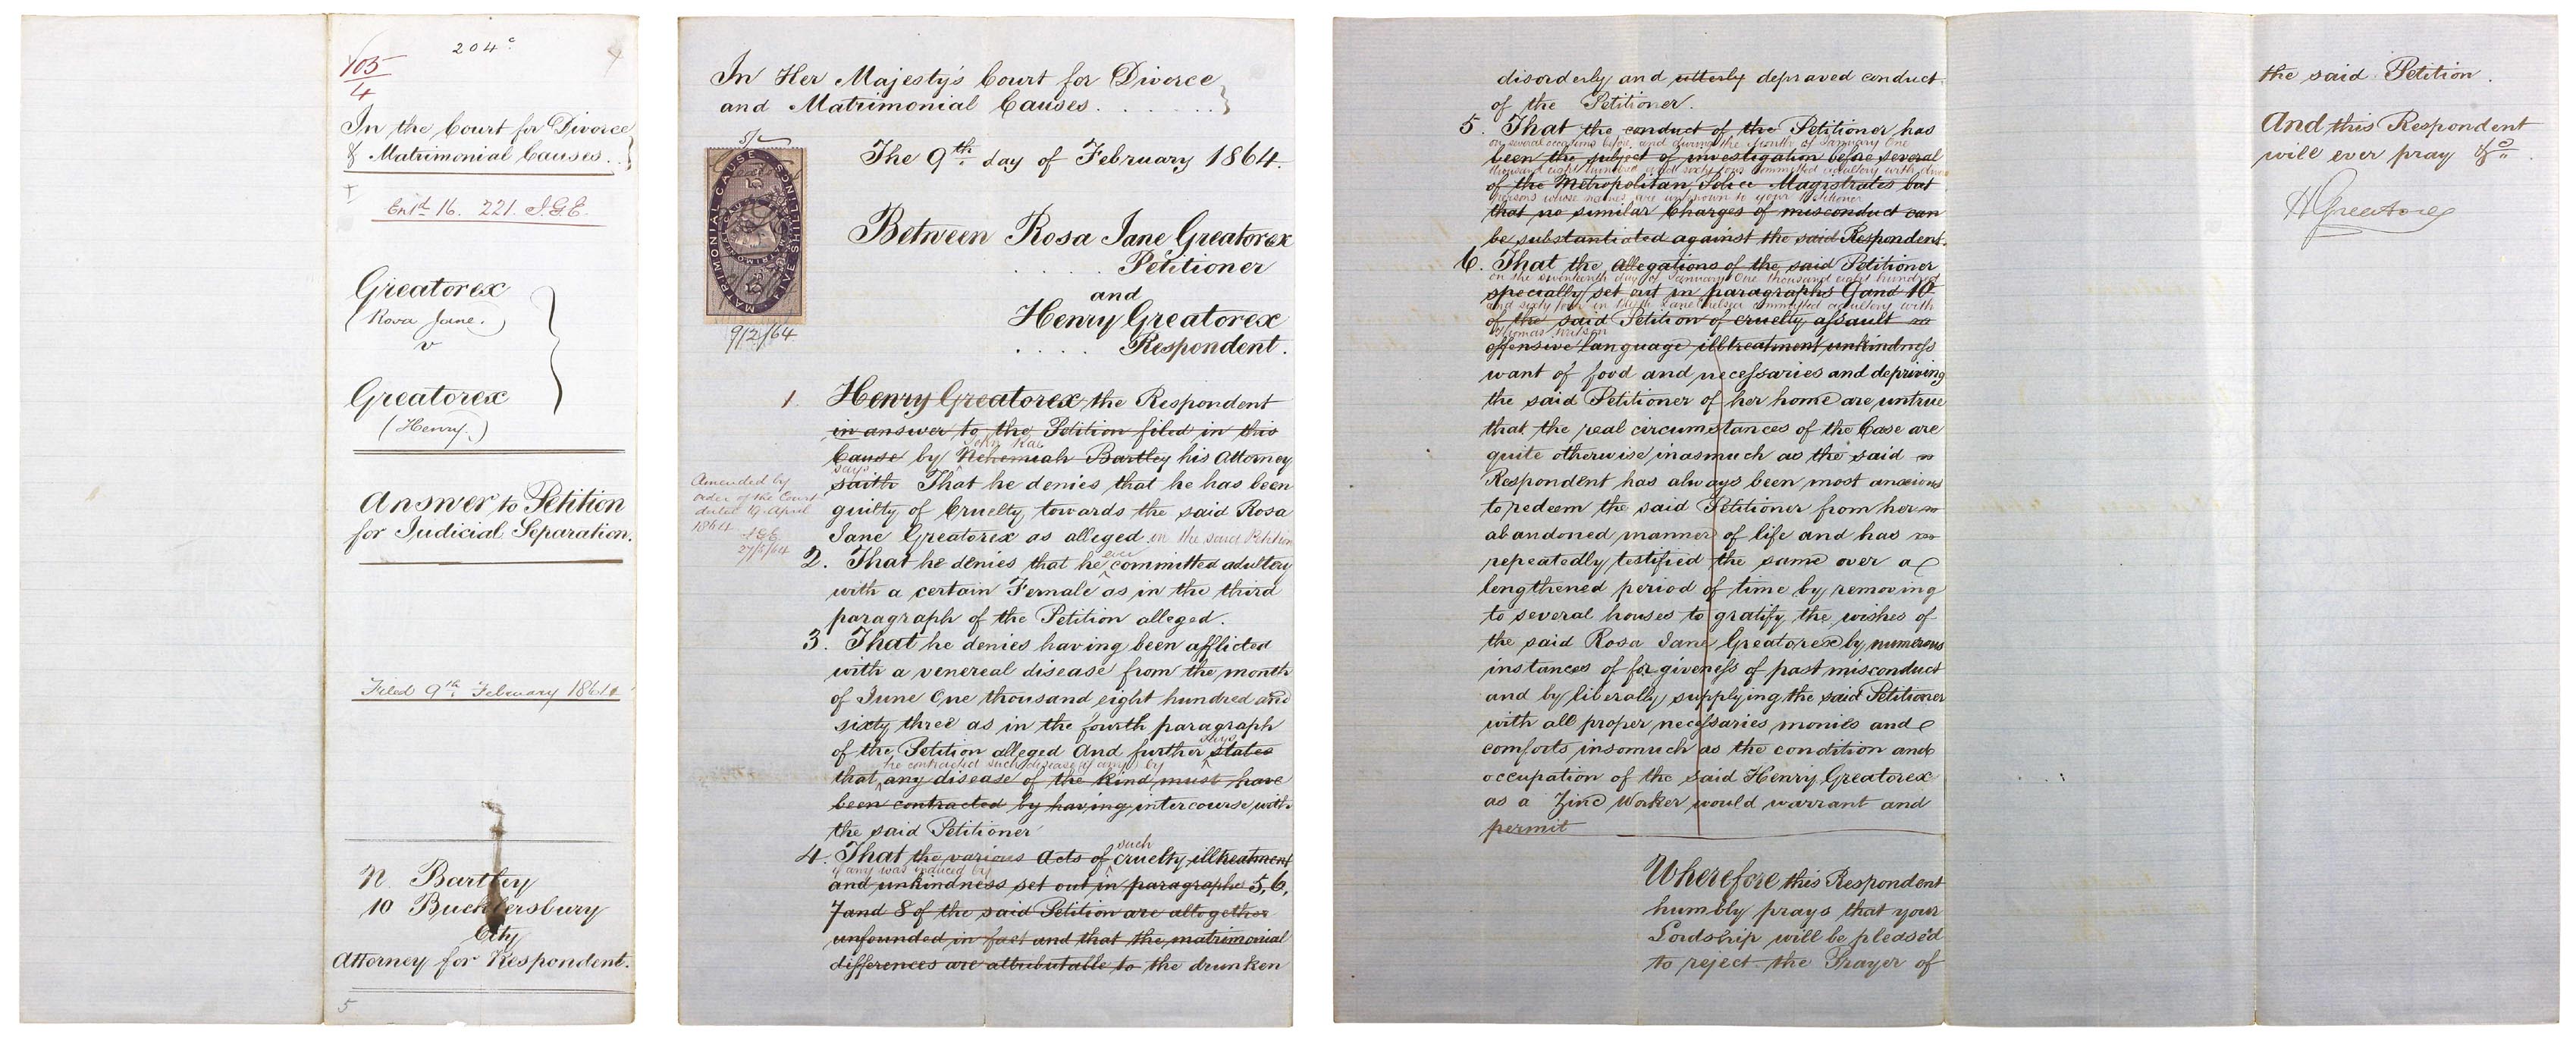 204 c
103
4
In the Court for Divorce
& Matrimonial Causes..
Entd 16. 221. J.G.E.
Greatorex
(Rosa Jane.)
v
Greatorex
(Henry.)
Answer to Petition
for Judicial Separation.
Filed 9th February 1864
N. Bartley
10 Bucklersbury
City
Attorney for Respondent.
5
In Her Majesty's Court for Divorce
and Matrimonial Causes . . . . . . .
5/-
MATRIMONIAL CAUSE FIVE SHILLINGS
9/2/64
The 9th day of February 1864.
Between Rosa Jane Greatorex
. . . . Petitioner
and
Henry Greatorex
. . . . Respondent.
1. Henry Greatorex the Respondent
in answer to the Petition filed in this
John Rae
Cause by Nehemiah Bartley his Attorney
says
saith That he denies that he has been
guilty of Cruelty towards the said Rosa
Jane Greatorex as alleged in the said Petition
Amended by
order of the Court
dated 19 April
1864
J.G.E.
27/5/64
ever
2. That he denies that he committed adultery
with a certain Female as in the third
paragraph of the Petition alleged.
3. That he denies having been afflicted
with a venereal disease from the month
of June One thousand eight hundred and
sixty three as in the fourth paragraph
says
of the Petition alleged And further states
he contracted such disease (if any) by
that any disease of the kind must have
been contracted by having intercourse with
the said Petitioner
such
4. That the various Acts of cruelty illtreatment
if any was induced by
and unkindness set out in paragraphs 5, 6,
7 and 8 of the said Petition are altogether
unfounded in fact and that the matrimonial
differences are attributable to the drunken
disorderly and utterly depraved conduct
of the Petitioner.
5. That the conduct of the Petitioner has
on several occasions before and during the Month of January One
been the subject of investigation before several
thousand eight hundred and sixty four committed adultery with divers
of the Metropolitan Police Magistrates but
persons whose names are unknown to your Petitioner
that no similar Charges of misconduct can
be substantiated against the said Respondent.
6. That the Allegations of the said Petitioner
on the seventeenth day of January One thousand eight hundred
specially set out in paragraphs 9 and 10
and sixty four in Lane Chelsea committed adultery with
of the said Petition of cruelty assault
Thomas Wilson
offensive language illtreatment unkindness
want of food and necessaries and depriving
the said Petitioner of her home are untrue
that the real circumstances of the Case are
quite otherwise inasmuch as the said
Respondent has always been most anxious
to redeem the said Petitioner from her
abandoned manner of life and has
repeatedly testified the same over a
lengthened period of time by removing
to several houses to gratify the wishes of
the said Rosa Jane Greatorex by numerous
instances of forgiveness of past misconduct
and by liberally supplying the said Petitioner
with all proper necessaries monies and
comforts insomuch as the condition and
occupation of the said Henry Greatorex
as a Zinc Worker would warrant and
permit
Wherefore this Respondent
humbly prays that your
Lordship will be pleased
to reject the Prayer of
the said Petition.
And this Respondent
will ever pray &c.
H Greatorex